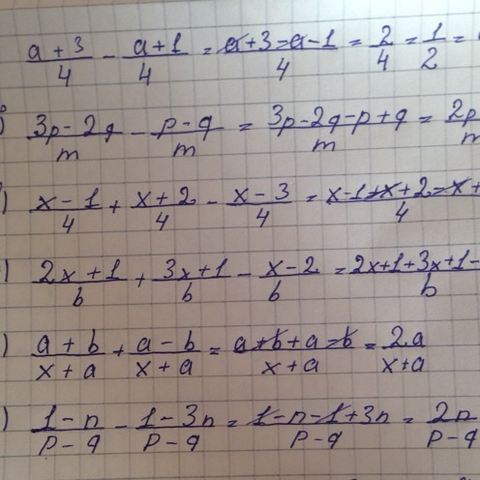 (a + 3)/4 - (a + 1)/4 = (a + 3 - a - 1)/4 = 2/4 = 1/2 =
) (3p - 2q)/m - (p - q)/m = (3p - 2q - p + q)/m = 2p /m
) (x - 1)/4 + (x + 2)/4 - (x - 3)/4 = (x - 1 + x + 2 - x + /4
) (2x + 1)/b + (3x + 1)/b - (x - 2)/b = (2x + 1 + 3x + 1 - /b
) (a + b)/(x + a) + (a - b)/(x + a) = (a + b + a - b)/(x + a) = 2a/(x + a)
) (1 - n)/(p - q) - (1 - 3n)/(p - q) = (1 - n - 1 + 3n)/(p - q) = 2n/(p - q)